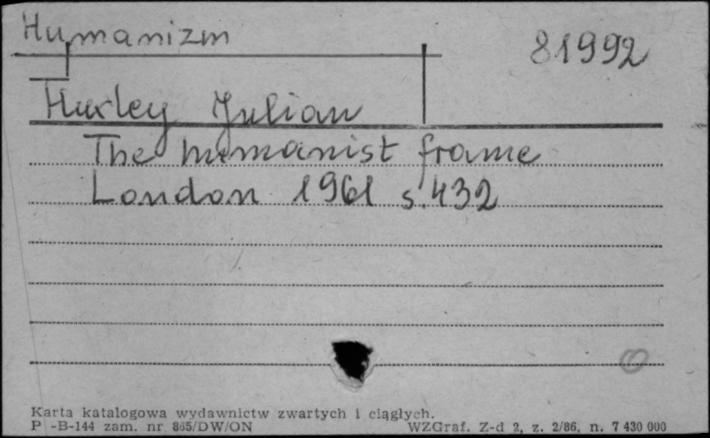 Humanizm
81992
Huxley Julian
The humanist frame
London 1961 s. 432
Karta katalogowa wydawnictw zwartych i ciągłych.
P -B-144 zam. nr 865/DW/ON WZGraf. Z-d 2, z. 2/86, n. 7 430 000